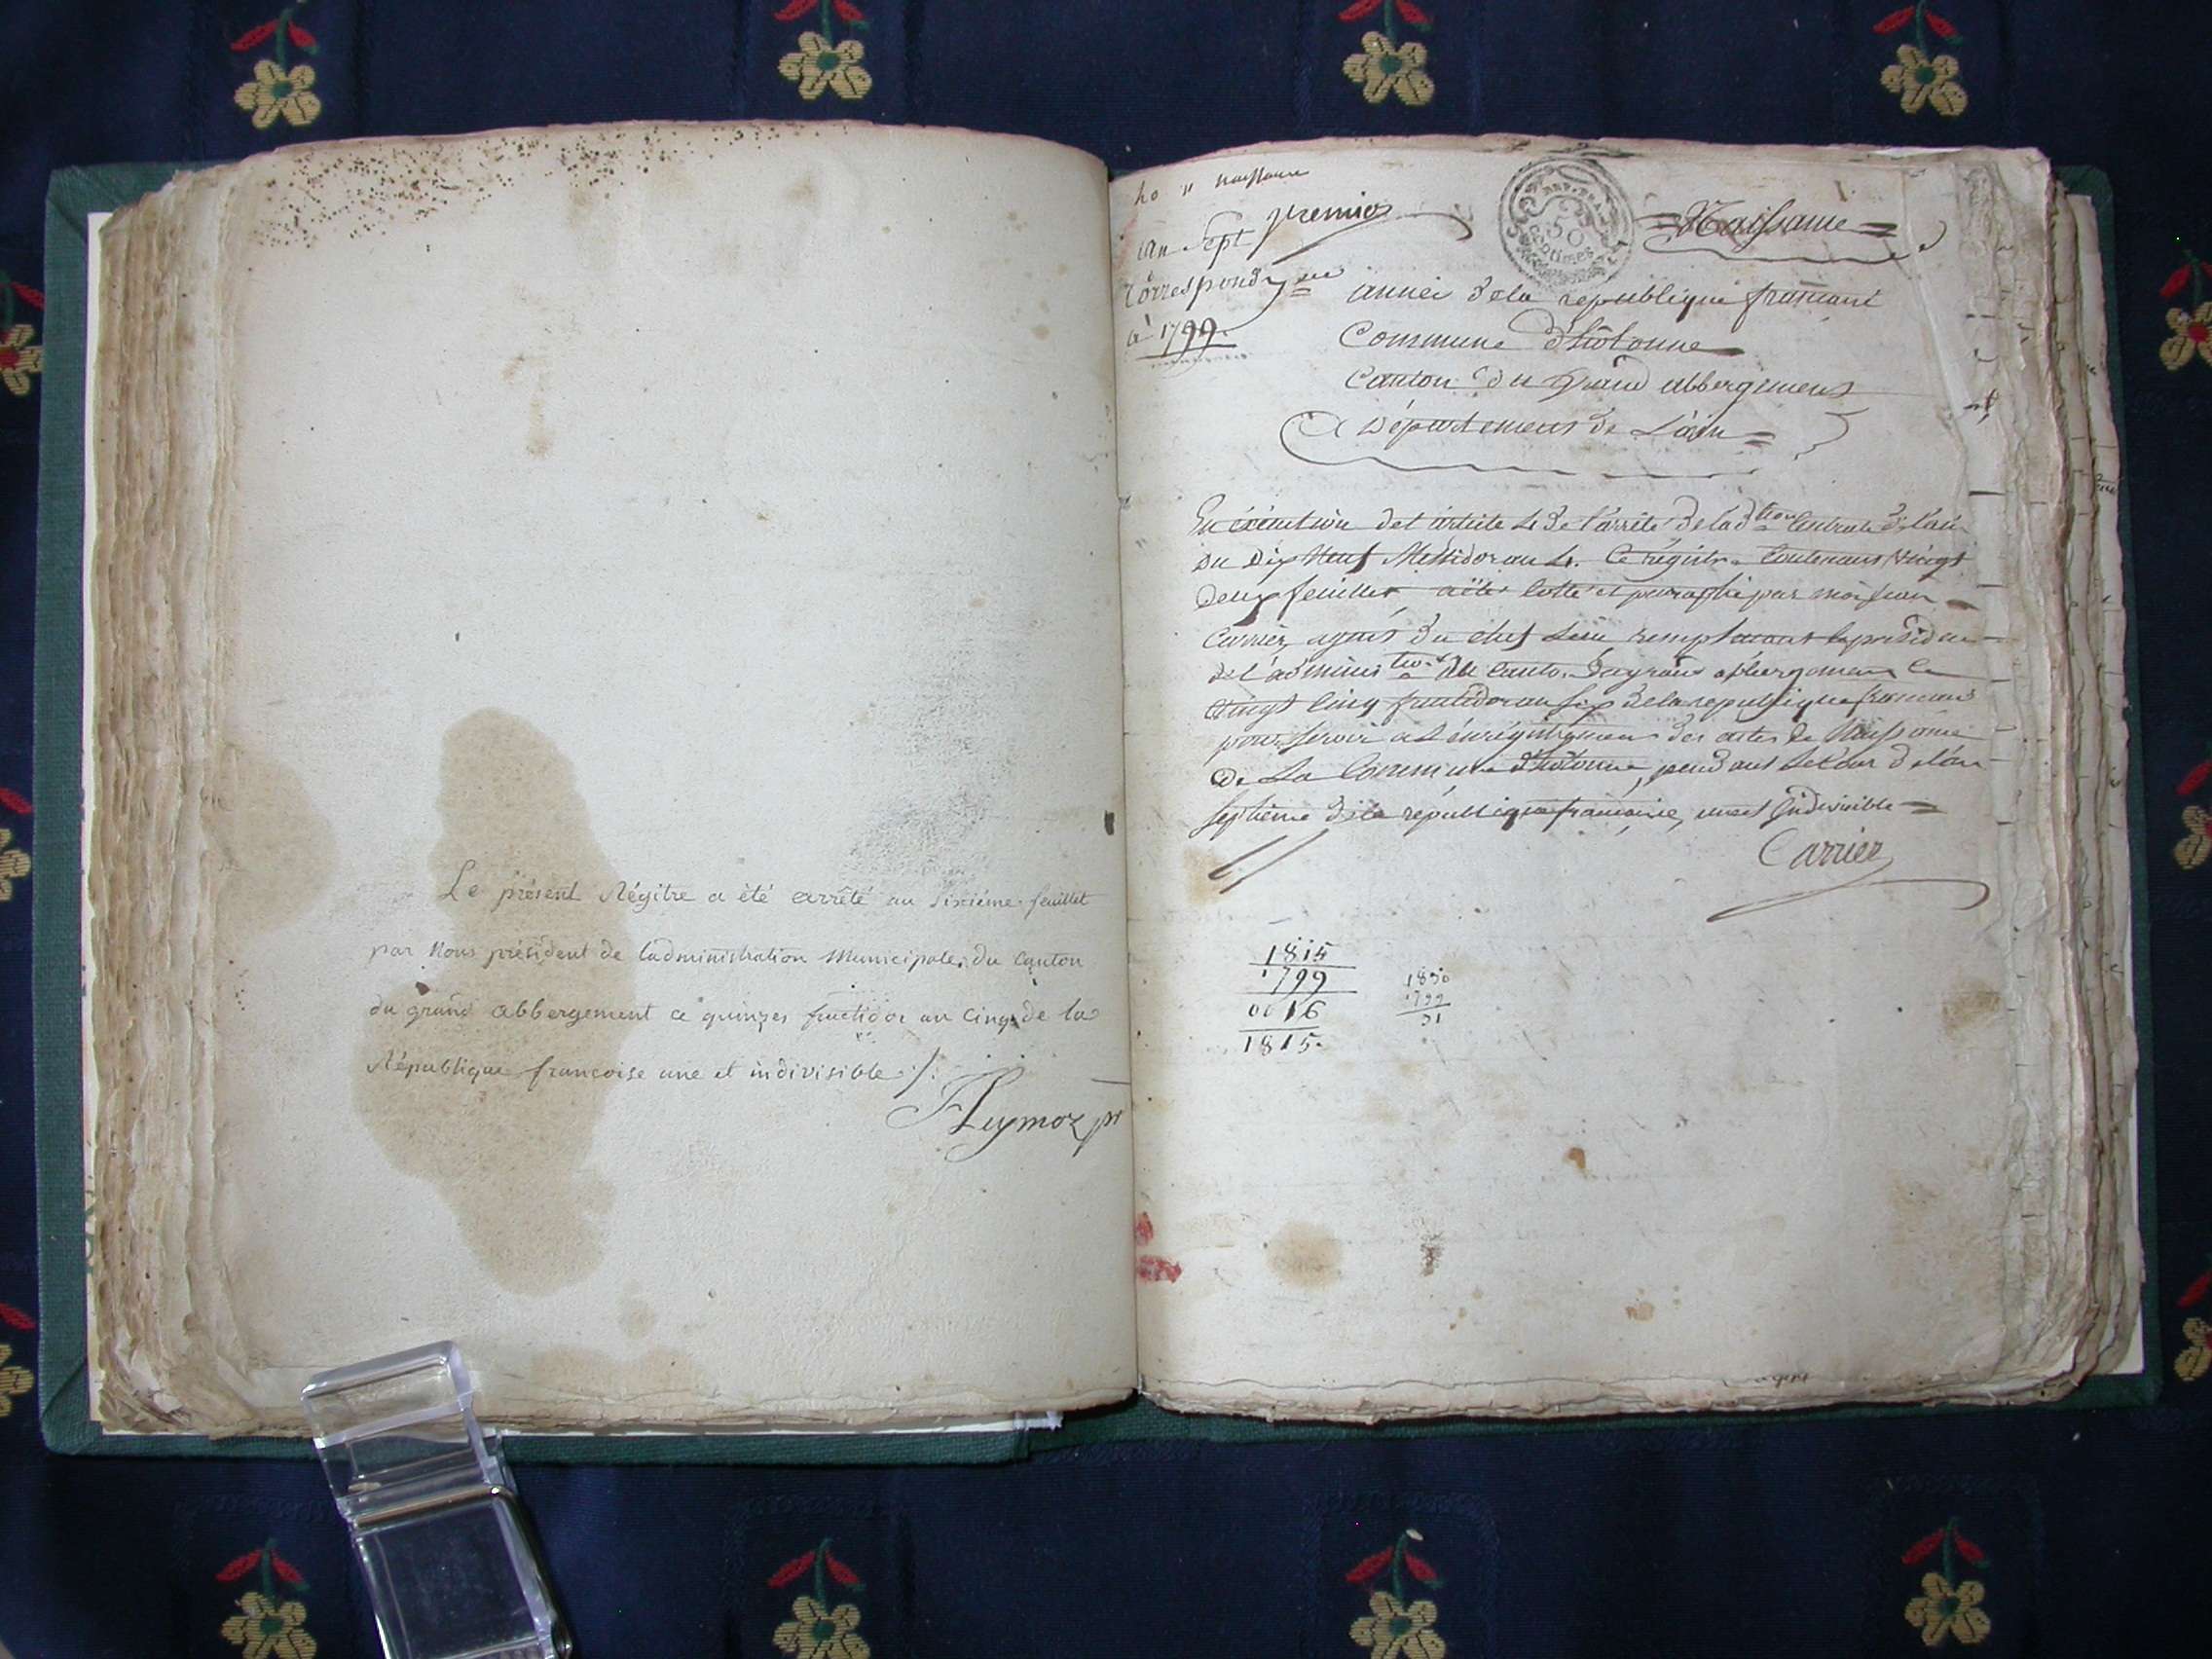 Le présent Régitre a été arrêté au sixiéme feuillet
par Nous président de ladministration Municipale du Canton
du grand abbergement ce quinzes fructidor an Cinq de la
République francoise une et indivisible ./.
pt
ho " naissance
premier
Naissance
REP. FRA.
50
centimes
an Sept
Correspond
a 1799
année de la republique francant
Commune d'hotonne
Canton du Grand abbergement
Département de L'ain
En éxécution del article 4 de l'arrêté de lad tion Centrale de l'ain
du Dix Neuf Messidor an 4. Ce régitre Contenant Vingt
Deux feuillet a été Cotté et paraphé par moi
Carrier, agent du chef Lieu remplacant le président
de l'adminis tion du canton du grand abbergement le
Vingt Cinq fructidor an Six de la republique
pour servir a L'enrégistrement des actes de Naissance
de La Commune d'hotonne, pendant de l'an
septieme de la république francaise, une et Indivisible
Carrier
1815
1799
0016
1815.
1830
1799
31
agent